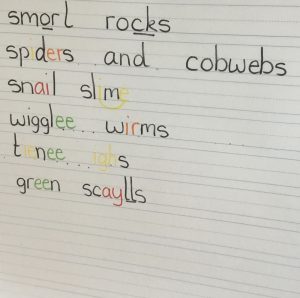 smorl rocks
spiders and cobwebs
snail slime
wigglee wirms
tienee ighs
green scaylls